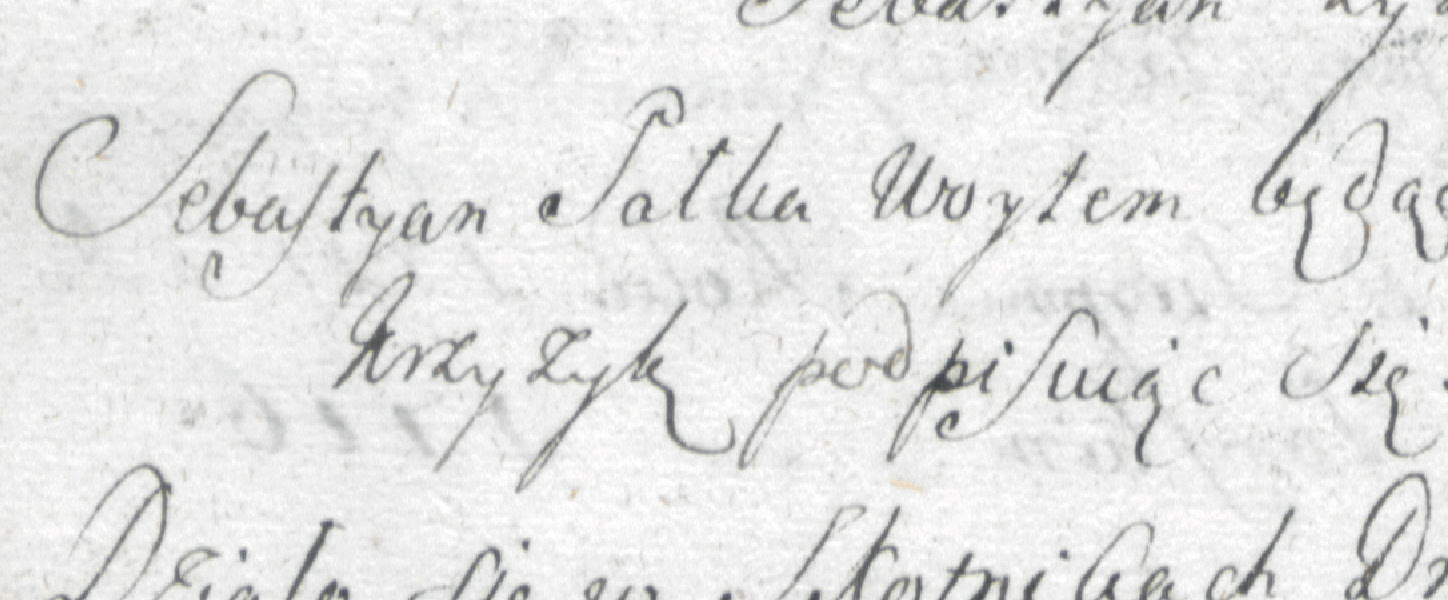 Sebastyan
Sebastyan Satka Woytem będąc
Krzyżyk podpisuiąc się
Działo się w Skotnikach